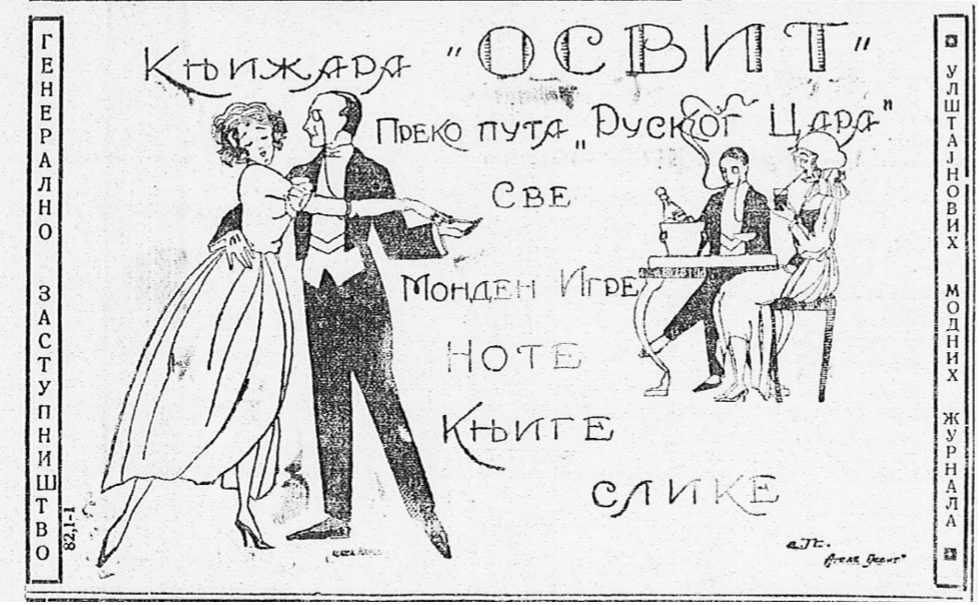 ГЕНЕРАЛНО ЗАСТУПНИШТВО
Књижара "ОСВИТ"
Преко пута „Руског Цара"
СВЕ
Монден Игре
НОТЕ
Књиге
СЛИКЕ
82,1-1
УЛШТАЈНОВИХ МОДНИХ ЖУРНАЛА